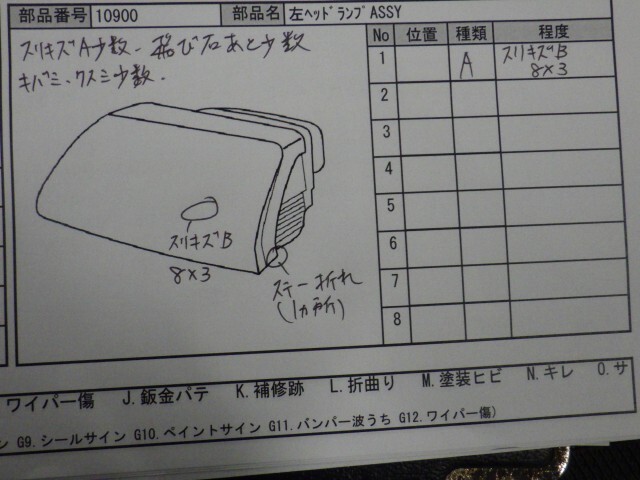 部品番号 10900 部品名 左ヘッドランプASSY
スリキズA少数、飛び石あと少数
キバミ、クスミ少数.
スリキズB
8×3
ステー折れ
(1ヵ所)
No 位置 種類 程度
1 A スリキズB
8×3
2
3
4
5
6
7
8
ワイパー傷 J.鈑金パテ K.補修跡 L.折曲り M.塗装ヒビ N.キレ O.サ
ン G9.シールサイン G10.ペイントサイン G11.バンパー波うち G12.ワイパー傷)